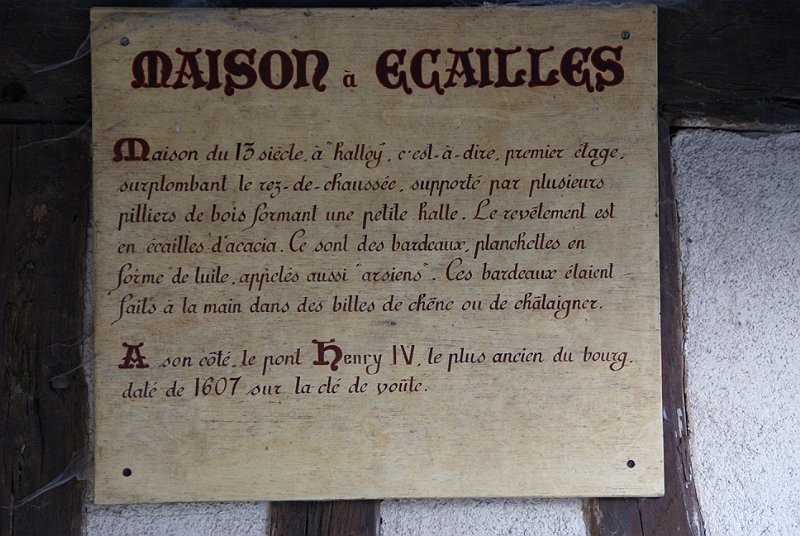 MAISON à ECAILLES
Maison du 13 siècle, à "halley", c'est-à-dire, premier étage,
surplombant le rez-de-chaussée, supporté par plusieurs
pilliers de bois formant une petite halle. Le revêtement est
en écailles d'acacia. Ce sont des bardeaux, planchettes en
forme de tuile, appelés aussi "arsiens". Ces bardeaux étaient
faits à la main dans des billes de chêne ou de châtaigner.
A son côté, le pont Henry IV, le plus ancien du bourg,
daté de 1607 sur la clé de voûte.